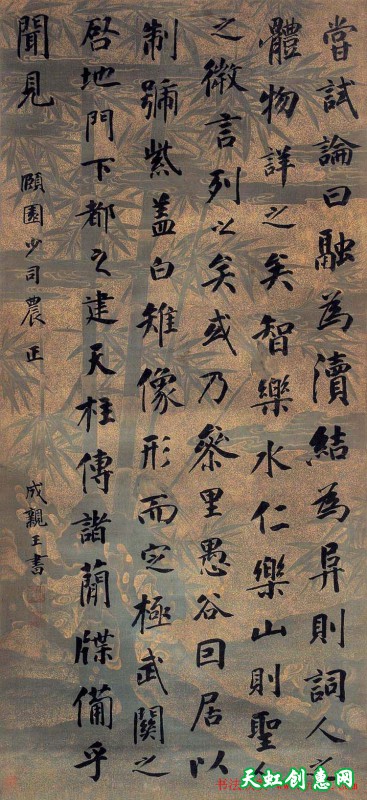 嘗試論曰融為瀆結為异則詞人之
體物詳之矣智樂水仁樂山則聖人
之微言列以矣或乃蔡里愚谷回居以
制號紫盖白雉像形而定極武關之
啓地門下都之建天柱傳諸蕳牒備乎
聞見
頤園少司農正
成親王書
书法
天虹创惠网